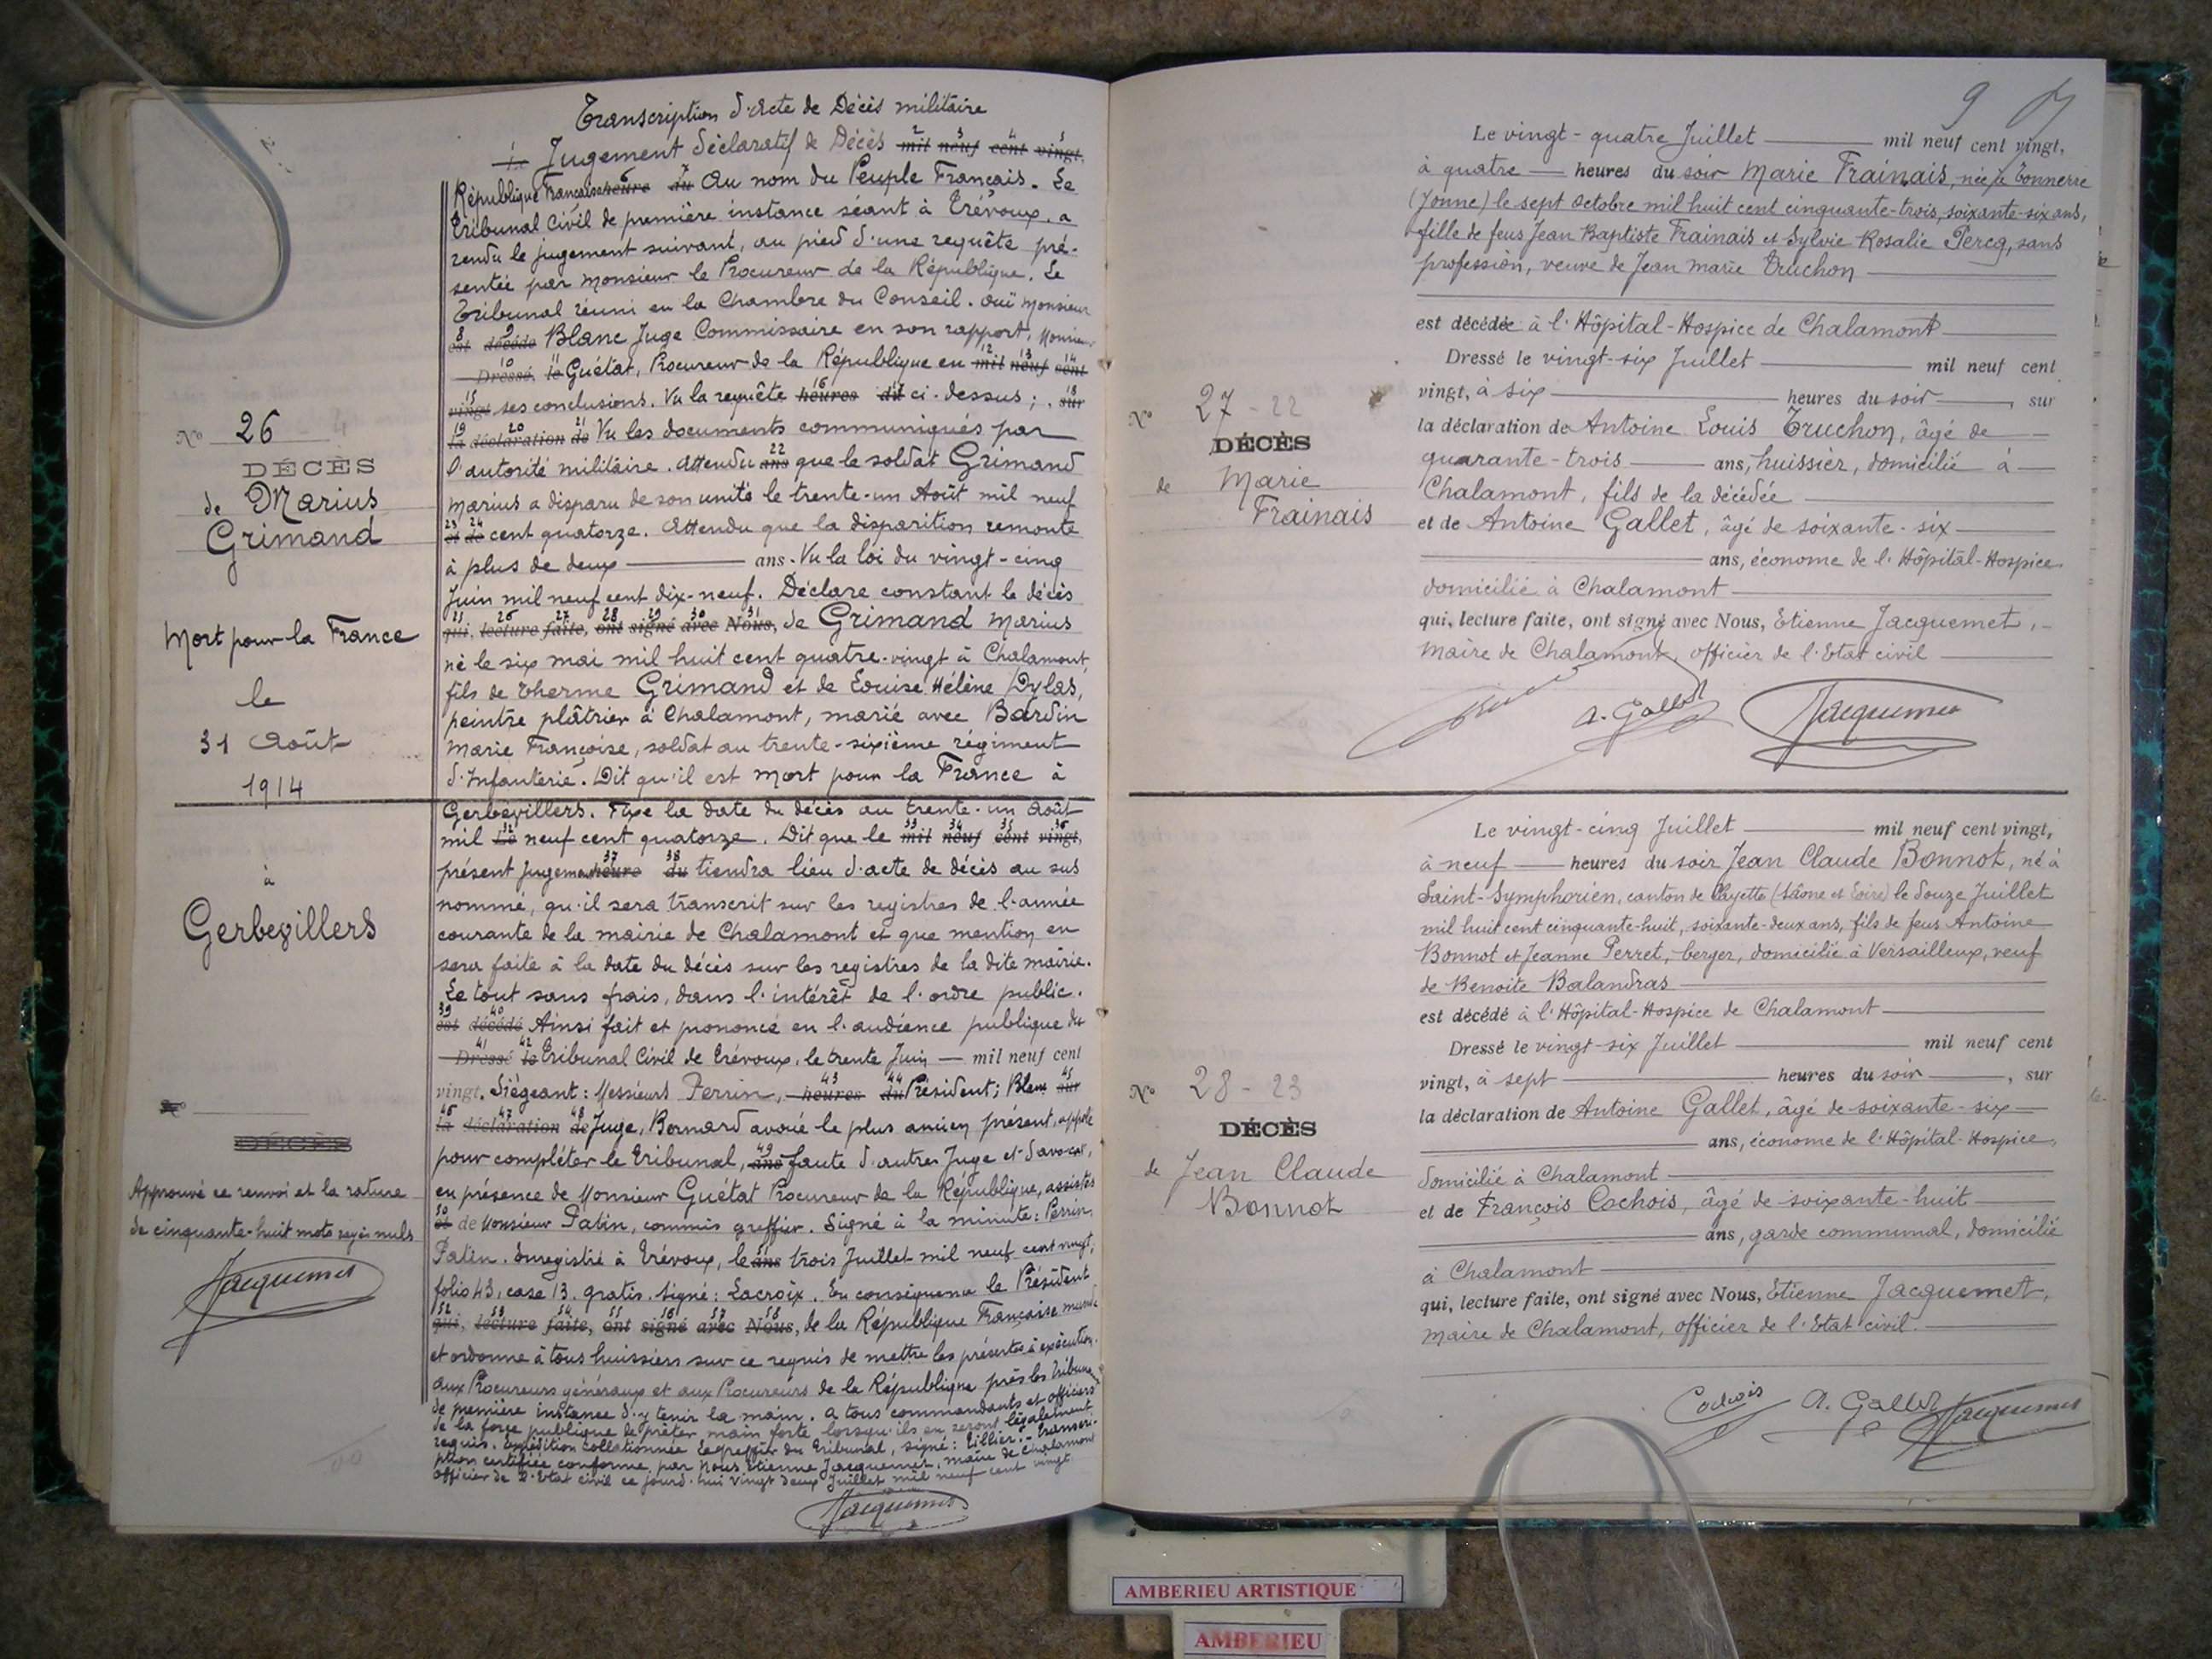 Transcription d'Acte de Décès militaire
Jugement déclaratif de Décès mil neuf cent vingt,
République Française heure du Au nom du Peuple Français. Le
Tribunal Civil de première instance séant à Trévoux, a
rendu le jugement suivant, au pied d'une requête pré-
sentée par Monsieur le Procureur de la République. Le
Tribunal réuni en la Chambre du Conseil. Ouï Monsieur
est décédé Blanc Juge Commissaire en son rapport, Monsieur
Dressé, le Guétat, Procureur de la République en mil neuf cent
vingt ses conclusions. Vu la requête heures du ci-dessus ; sur
la déclaration de Vu les documents communiqués par
l'autorité militaire. Attendu ans que le soldat Grimand
Marius a disparu de son unité le trente-un Août mil neuf
et de cent quatorze. Attendu que la disparition remonte
à plus de deux ans. Vu la loi du vingt-cinq
Juin mil neuf cent dix-neuf. Déclare constant le décès
qui, lecture faite, ont signé avec Nous, de Grimand Marius
né le six mai mil huit cent quatre-vingt à Chalamont,
fils de Therme Grimand et de Louise Hélène Dylas,
peintre plâtrier à Chalamont, marié avec Bardin
Marie Françoise, soldat au trente-sixième régiment
d'Infanterie. Dit qu'il est Mort pour la France à
Gerbévillers. Fixe la date du décès au trente-un Août
mil Le neuf cent quatorze. Dit que le mil neuf cent vingt,
présent jugement heure du tiendra lieu d'acte de décès au sus
nommé, qu'il sera transcrit sur les registres de l'année
courante de la mairie de Chalamont et que mention en
sera faite à la date du décès sur les registres de la dite mairie.
Le tout sans frais, dans l'intérêt de l'ordre public.
est décédé Ainsi fait et prononcé en l'audience publique du
Dressé le Tribunal Civil de Trévoux, le trente Juin mil neuf cent
vingt. Siégeant : Messieurs Perrin, heures du Président ; Blanc sur
la déclaration de Juge, Bernard avoué le plus ancien présent, appelé
pour compléter le Tribunal, ans faute d'autres Juge et d'avocat,
en présence de Monsieur Guétat Procureur de la République, assistés
et de Monsieur Patin, commis greffier. Signé à la minute : Perrin,
Patin. Enregistré à Trévoux, le ans trois Juillet mil neuf cent vingt,
folio 43, case 13. gratis. Signé : Lacroix. En conséquence le Président
qui, lecture faite, ont signé avec Nous, de la République Française mande
et ordonne à tous huissiers sur ce requis de mettre les présentes à exécution.
Aux Procureurs généraux et aux Procureurs de la République près les Tribunaux
de première instance d'y tenir la main. A tous commandants et officiers
de la force publique de prêter main forte lorsqu'ils en seront légalement
requis. Expédition collationnée Le greffier du Tribunal, signé : Tillier. Transcri-
ption certifiée conforme par Nous Etienne Jacquemet, maire de Chalamont
officier de l'Etat civil ce jourd'hui vingt deux Juillet mil neuf cent vingt
Jacquemet
N° 26
DÉCÈS
de Marius
Grimand
Mort pour la France
le
31 Août
1914
à
Gerbevillers
N°
DÉCÈS
Approuvé ce renvoi et la rature
de cinquante-huit mots rayés nuls
Jacquemet
9
N° 27 - 22
DÉCÈS
de Marie
Frainais
Le vingt-quatre Juillet mil neuf cent vingt,
à quatre heures du soir Marie Frainais, née à Tonnerre
(Yonne) le sept Octobre mil huit cent cinquante-trois, soixante-six ans,
fille de feus Jean Baptiste Frainais et Sylvie Rosalie Percq, sans
profession, veuve de Jean Marie Truchon
est décédée à l'Hôpital-Hospice de Chalamont
Dressé le vingt-six Juillet mil neuf cent
vingt, à six heures du soir, sur
la déclaration de Antoine Louis Truchon, âgé de
quarante-trois ans, huissier, domicilié à
Chalamont, fils de la décédée
et de Antoine Gallet, âgé de soixante-six
ans, économe de l'Hôpital-Hospice
domicilié à Chalamont
qui, lecture faite, ont signé avec Nous, Etienne Jacquemet,
Maire de Chalamont, officier de l'Etat civil
A. Gallet Jacquemet
N° 28 - 23
DÉCÈS
de Jean Claude
Bonnot
Le vingt-cinq Juillet mil neuf cent vingt,
à neuf heures du soir Jean Claude Bonnot, né à
Saint-Symphorien, canton de (Saône et Loire) le douze Juillet
mil huit cent cinquante-huit, soixante-deux ans, fils de feus Antoine
Bonnot et Jeanne Perret, berger, domicilié à Versailleux, veuf
de Benoite Balandras
est décédé à l'Hôpital-Hospice de Chalamont
Dressé le vingt-six Juillet mil neuf cent
vingt, à sept heures du soir, sur
la déclaration de Antoine Gallet, âgé de soixante-six
ans, économe de l'Hôpital-Hospice,
domicilié à Chalamont
et de François Cochois, âgé de soixante-huit
ans, garde communal, domicilié
à Chalamont
qui, lecture faite, ont signé avec Nous, Etienne Jacquemet,
Maire de Chalamont, officier de l'Etat civil.
Cochois A. Gallet Jacquemet
AMBERIEU ARTISTIQUE
AMBERIEU